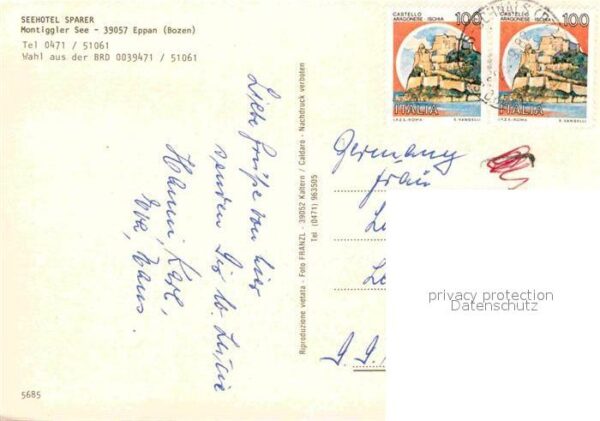 SEEHOTEL SPARER
Montiggler See - 39057 Eppan (Bozen)
Tel 0471 / 51061
Wahl aus der BRD 0039471 / 51061
CASTELLO
ARAGONESE ISCHIA
100
ITALIA
I.P.Z.S.-ROMA
E. VANGELLI
CASTELLO
ARAGONESE ISCHIA
100
ITALIA
I.P.Z.S.-ROMA
E. VANGELLI
Liebe Grüße von hier
senden Dir lb.
Hanni, Karl,
Eva, Hans.
Riproduzione vietata - Foto FRANZL - 39052 Kaltern / Caldaro - Nachdruck verboten
Tel (0471) 963505
Germany
Frau
privacy protection
Datenschutz
5685